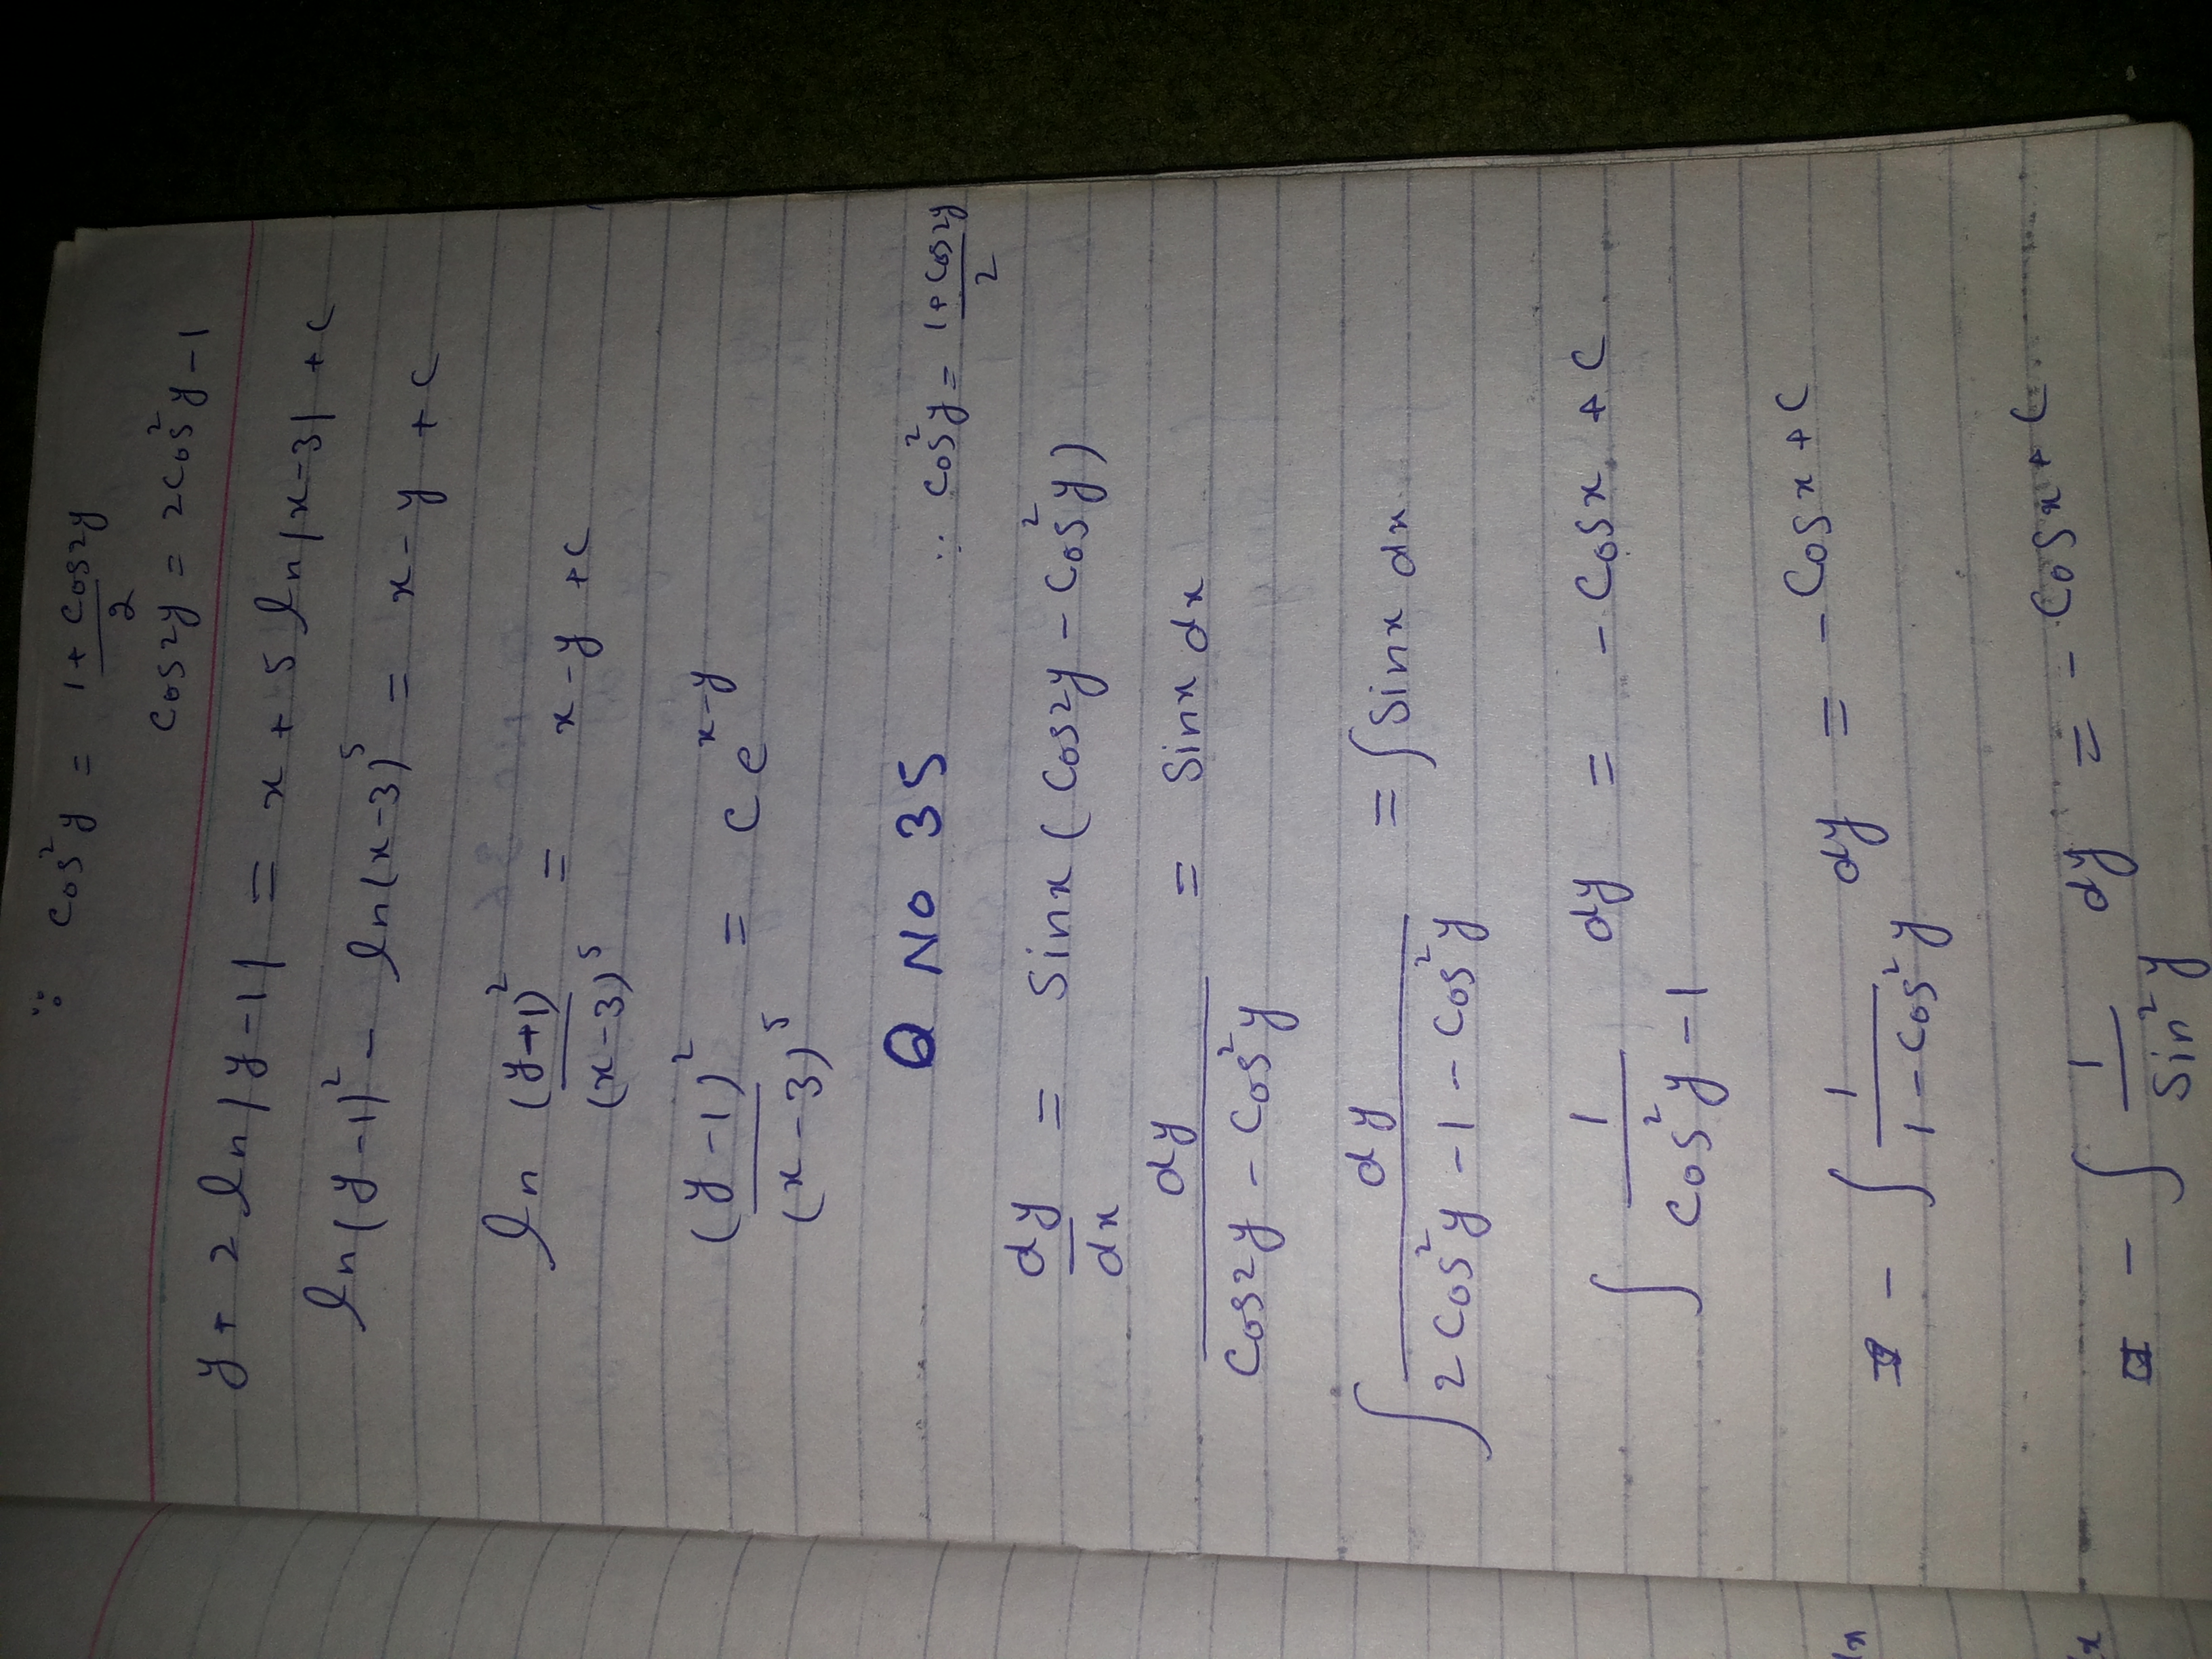 ∵ Cos²y = (1 + Cos2y)/2
Cos2y = 2Cos²y - 1
y + 2 ln|y-1| = x + 5 ln|x-3| + c
ln(y-1)² - ln(x-3)⁵ = x - y + c
ln (y+1)²/(x-3)⁵ = x - y + c
(y-1)²/(x-3)⁵ = c e^(x-y)
Q No 35
∵ Cos²y = (1 + Cos2y)/2
dy/dx = Sinx (Cos2y - Cos²y)
dy/(Cos2y - Cos²y) = Sinx dx
∫ dy/(2Cos²y - 1 - Cos²y) = ∫ Sinx dx
∫ 1/(Cos²y - 1) dy = - Cosx + C
- ∫ 1/(1 - Cos²y) dy = - Cosx + C
- ∫ 1/Sin²y dy = - Cosx + C